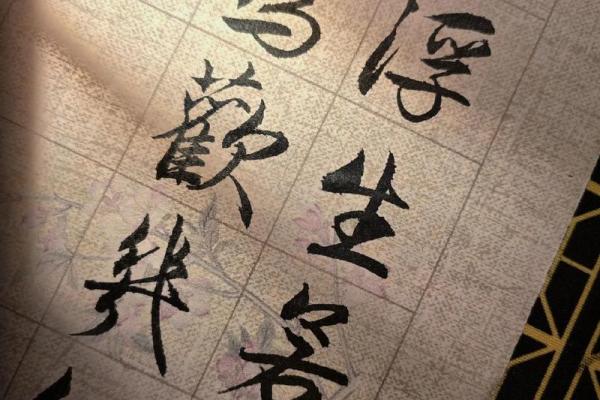 浮生若
為歡幾